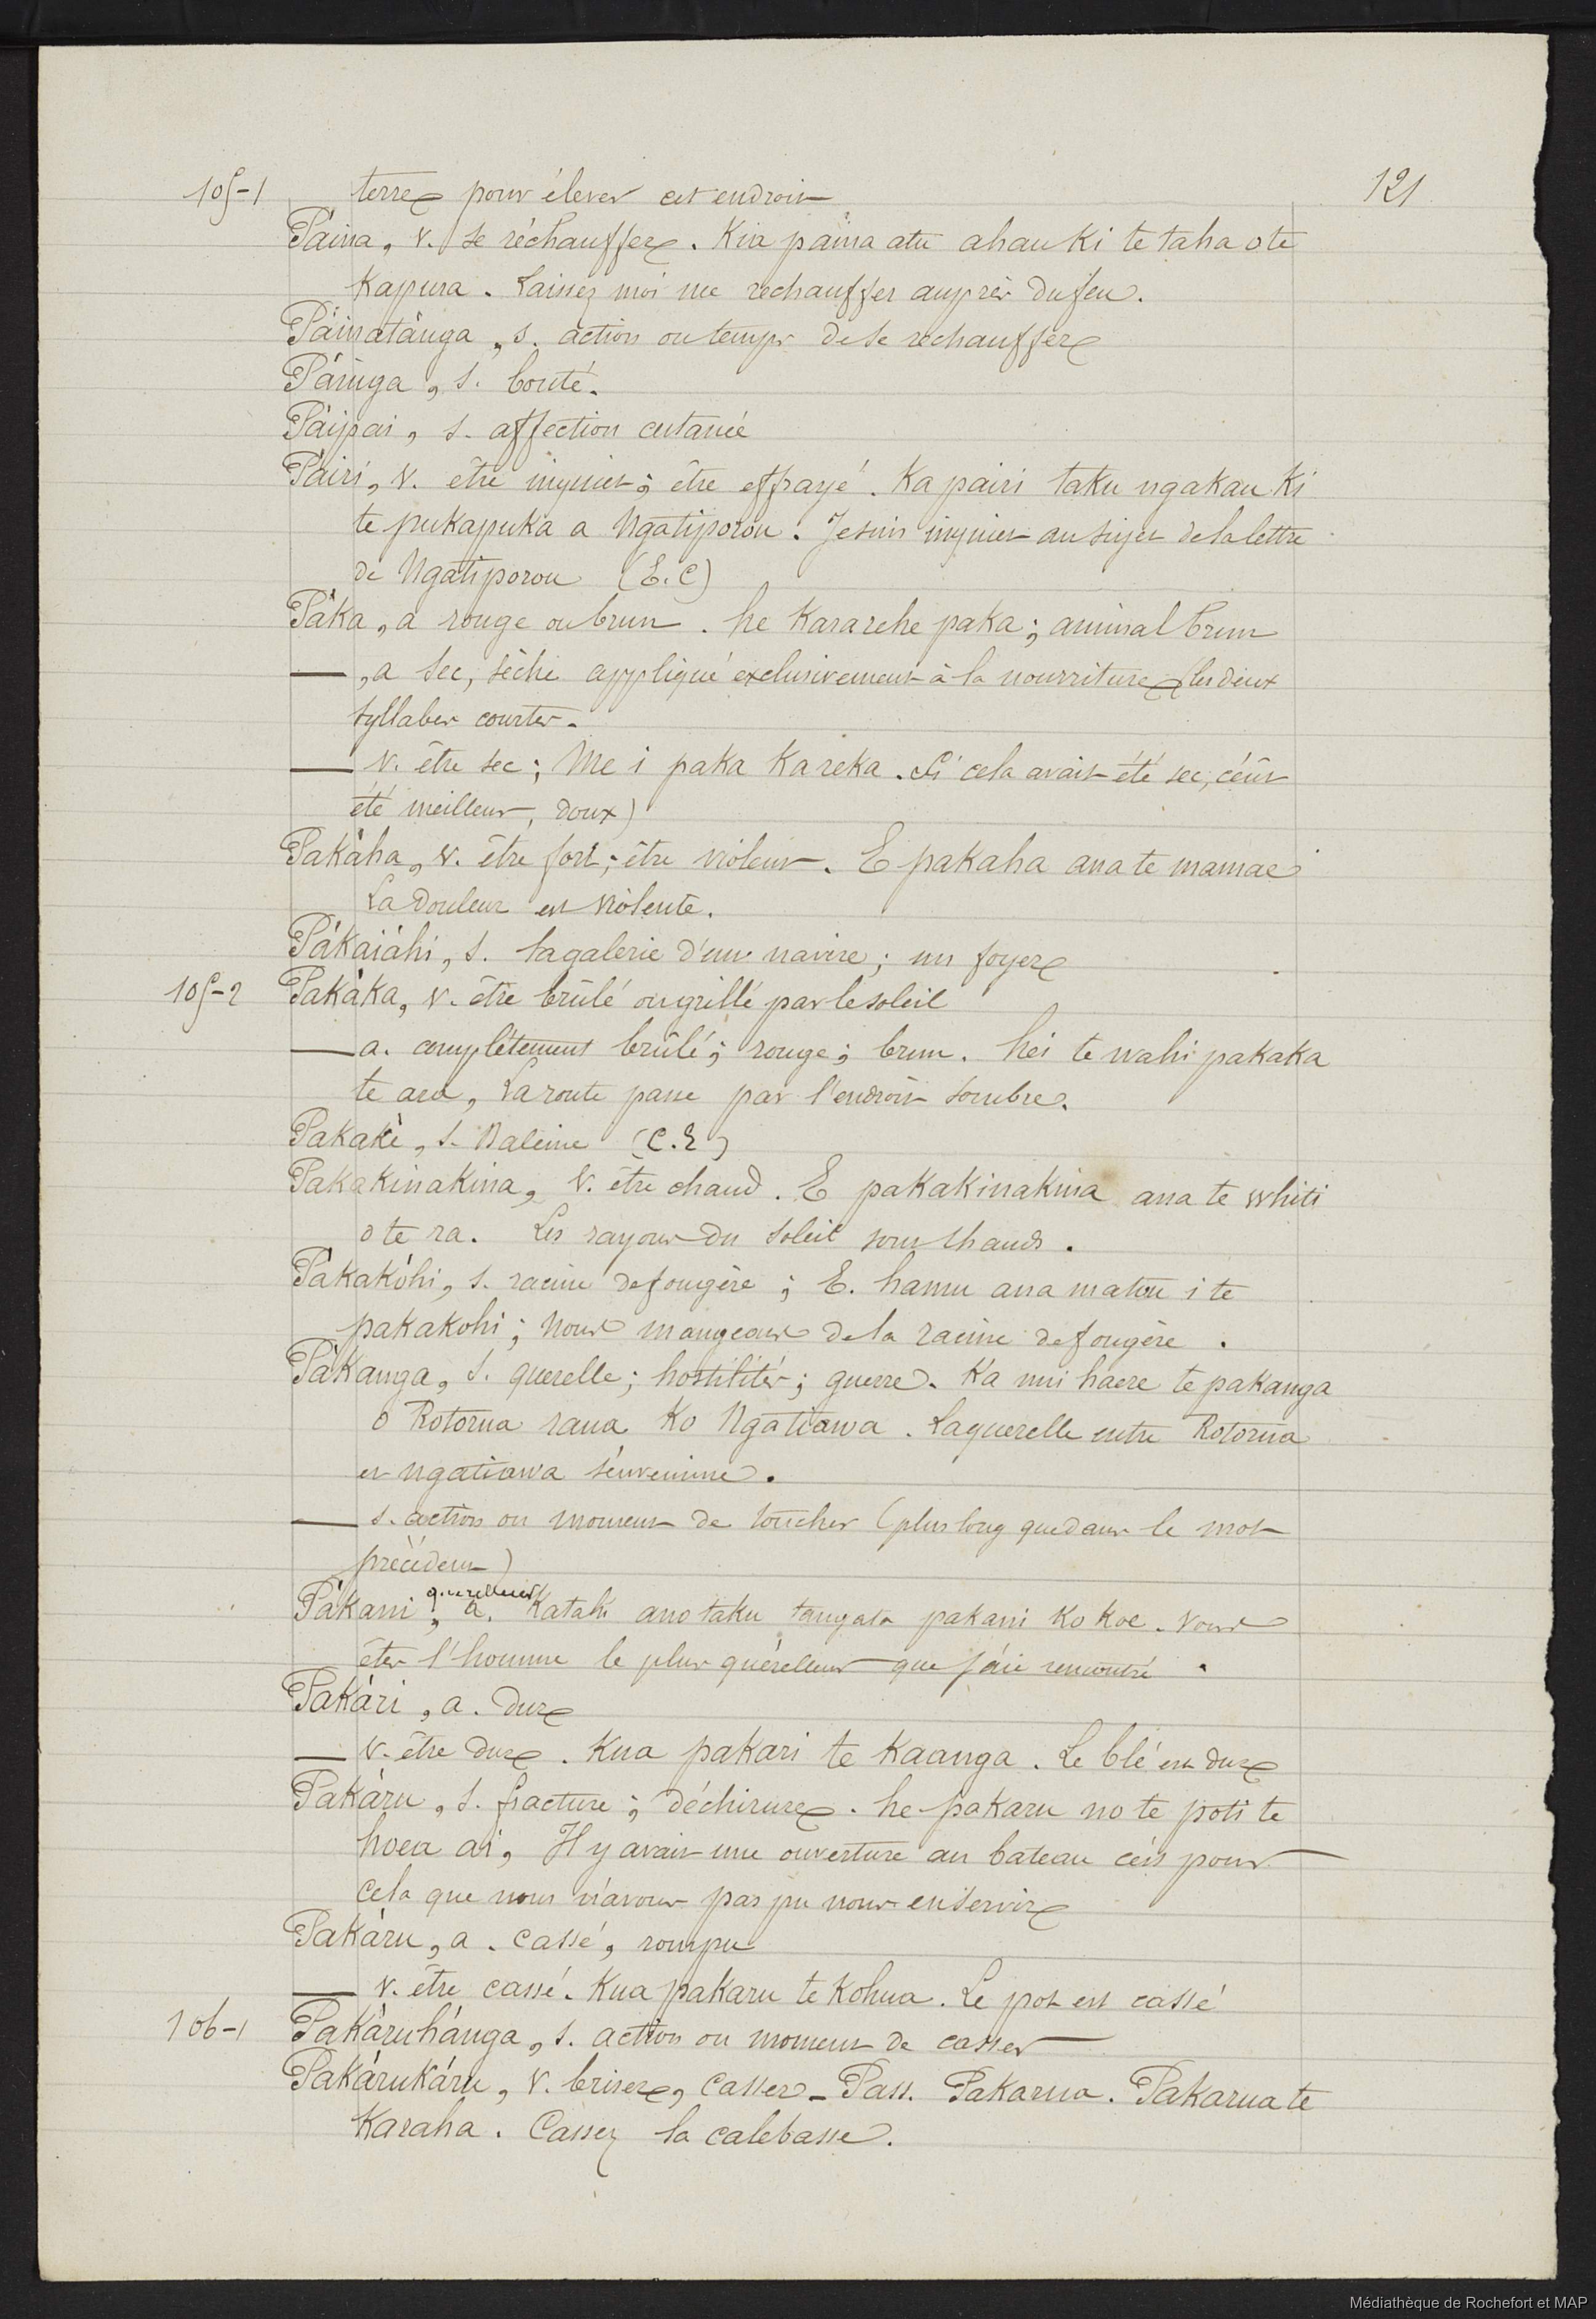 121
105-1 terre pour élever cet endroit
Páina, v. se réchauffer. Kia paina atu ahau ki te taha o te
Kapura. Laissez moi me rechauffer auprès du feu.
Páinatánga, s. action ou temps de se rechauffer
Páinga, s. bonté.
Páipai, s. affection cutanée
Páiri, v. être inquiet; être effrayé. Ka pairi taku ngakau Ki
te pukapuka a Ngatiporou. Je suis inquiet au sujet de la lettre
de Ngatiporou (E.C)
Páka, a rouge ou brun. he Kararehe paka; animal brun
—, a sec, sèche appliqué exclusivement à la nourriture (les deux
syllabes courtes.
— v. être sec; Me i paka Ka reka. Si cela avait été sec, c'eût
été meilleur, doux)
Pakáha, v. être fort; être violent. E pakaha ana te mamae
La douleur est violente.
Pákaiáhi, s. la galerie d'un navire; un foyer
105-2 Pakáka, v. être brûlé ou grillé par le soleil
— a. complètement brûlé; rouge; brun. hei te wahi pakaka
te ara, La route passe par l'endroit sombre.
Pakaké, s. Baleine (C.E)
Pakakinakina, v. être chaud. E pakakinakina ana te whiti
o te ra. Les rayons du soleil sont chauds.
Pákakóhi, s. racine de fougère; E. hamu ana matou i te
pakakohi; Nous mangeons de la racine de fougère.
Pákanga, s. querelle; hostilités; guerre. Ka nui haere te pakanga
o Rotorua raua Ko Ngatiawa. La querelle entre Rotorua
et ngatiawa s'envenime.
— s. action ou moment de toucher (plus long que dans le mot
précédent)
querelleur
Pákani, a. Katahi ano taku tangata pakani Ko koe. Vous
êtes l'homme le plus quérelleur que j'aie rencontré.
Pakári, a. dur
— v. être dur. Kua pakari te Kaanga. Le blé est dur
Pakáru, s. fracture; déchirure. he pakaru no te poti te
hoea ai, Il y avait une ouverture au bateau c'est pour
cela que nous n'avons pas pu nous en servir
Pakáru, a. cassé, rompu
— v. être cassé. Kua pakaru te Kohua. Le pot est cassé
106-1 Pakáruhánga, s. action ou moment de casser
Pakárukáru, v. briser, casser - Pass. Pakarua. Pakarua te
Karaha. Cassez la calebasse.
Médiathèque de Rochefort et MAP